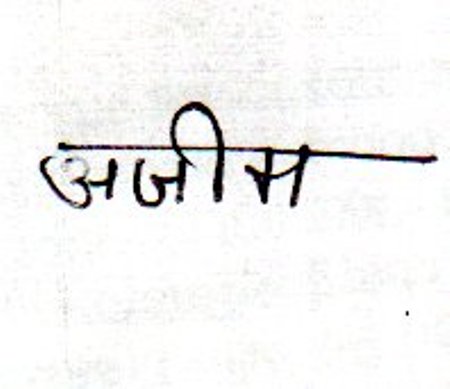 अजीम